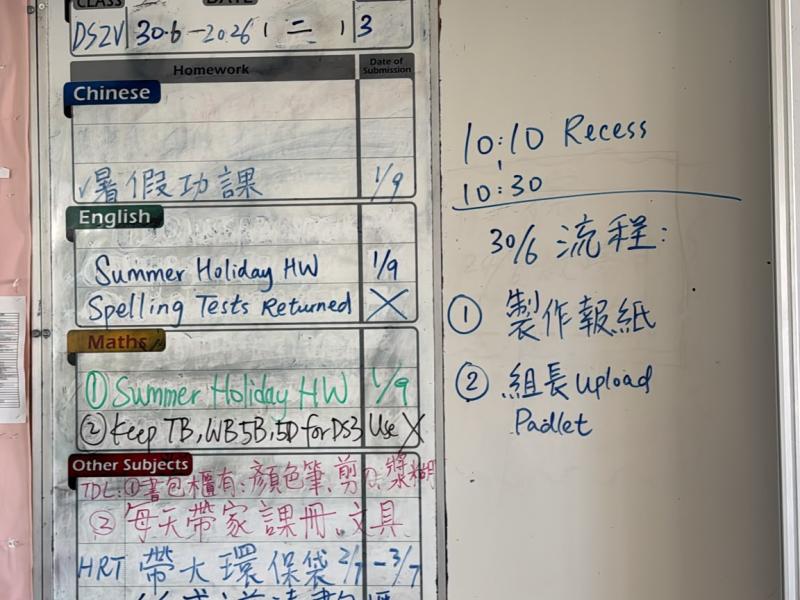 CLASS DATE
DS2V 30.6-2026 ( 二 ) 3
Homework Date of Submission
Chinese
✓暑假功課 1/9
English
Summer Holiday HW 1/9
Spelling Tests Returned X
Maths
① Summer Holiday HW 1/9
② Keep TB, WB 5B, 5D for DS3 Use X
Other Subjects
TDL: ①書包櫃有: 顏色筆、剪刀、漿糊
② 每天帶家課冊、文具
HRT 帶大環保袋 2/7-3/7
10:10 Recess
10:30
30/6 流程:
① 製作報紙
② 組長 upload
Padlet